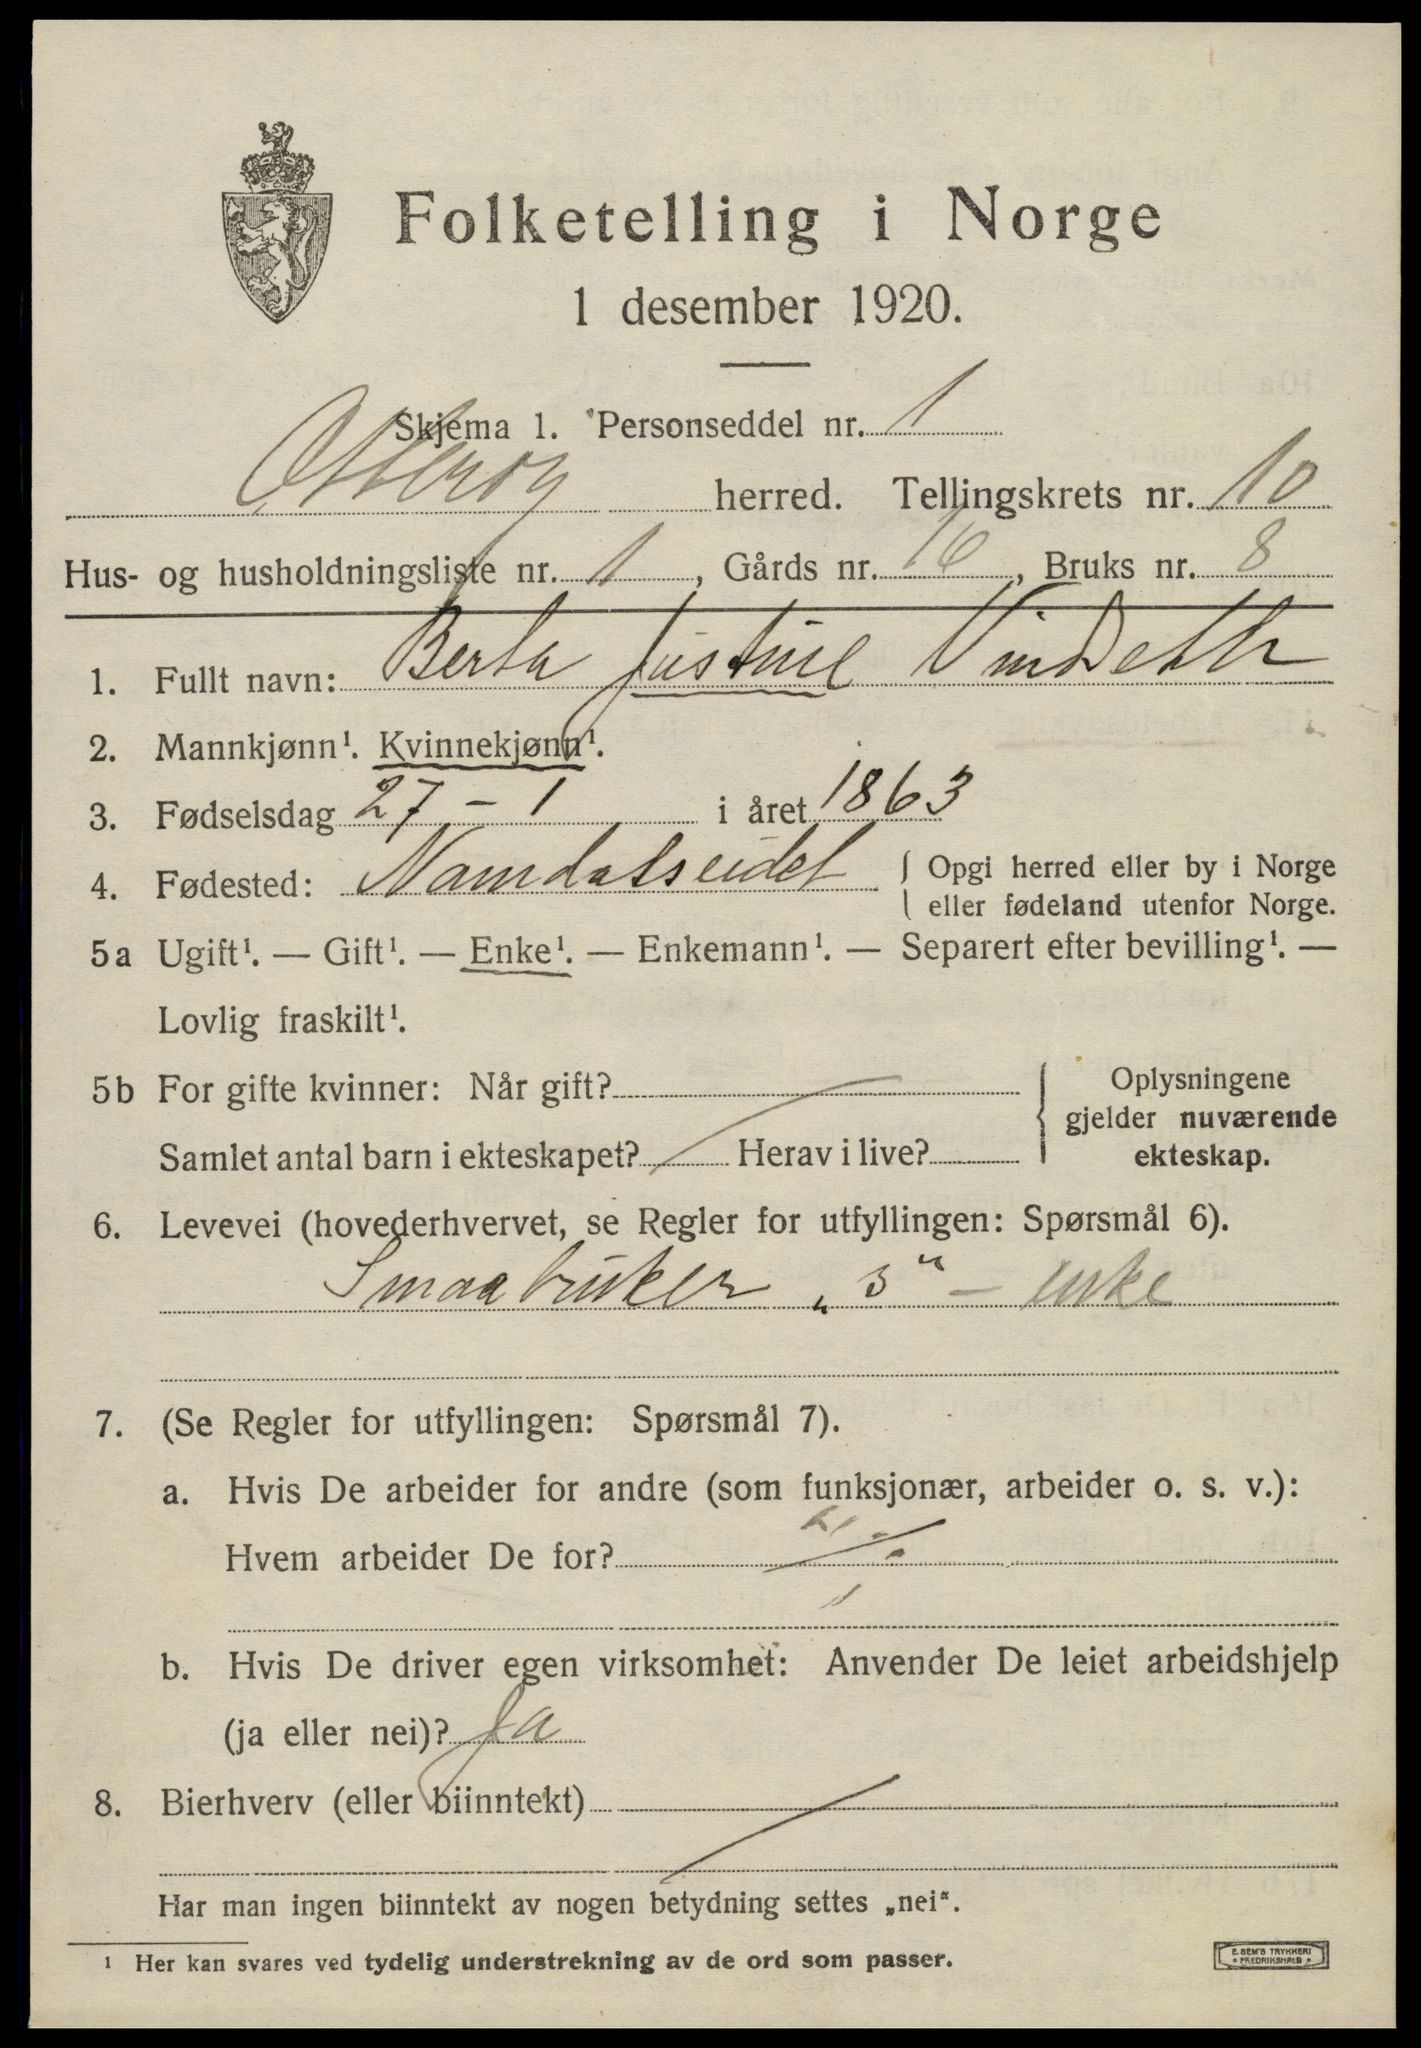 Folketelling i Norge
1 desember 1920.
Skjema 1. Personseddel nr. 1
Otterøy herred. Tellingskrets nr. 10
Hus- og husholdningsliste nr. 1, Gårds nr. 16, Bruks nr. 8
1. Fullt navn: Berta Justine Vindseth
2. Mannkjønn¹. Kvinnekjønn¹.
3. Fødselsdag 27 - 1 i året 1863
4. Fødested: Namdalseidet { Opgi herred eller by i Norge
eller fødeland utenfor Norge.
5a Ugift¹. — Gift¹. — Enke¹. — Enkemann¹. — Separert efter bevilling¹. —
Lovlig fraskilt¹.
5b For gifte kvinner: Når gift?
Samlet antal barn i ekteskapet? Herav i live?
Oplysningene
gjelder nuværende
ekteskap.
6. Levevei (hovederhvervet, se Regler for utfyllingen: Spørsmål 6).
Smaabruker „s“ - enke
7. (Se Regler for utfyllingen: Spørsmål 7).
a. Hvis De arbeider for andre (som funksjonær, arbeider o. s. v.):
Hvem arbeider De for?
b. Hvis De driver egen virksomhet: Anvender De leiet arbeidshjelp
(ja eller nei)? Ja
8. Bierhverv (eller biinntekt)
Har man ingen biinntekt av nogen betydning settes „nei“.
¹ Her kan svares ved tydelig understrekning av de ord som passer.
E. SEM'S TRYKKERI
FREDRIKSHALD